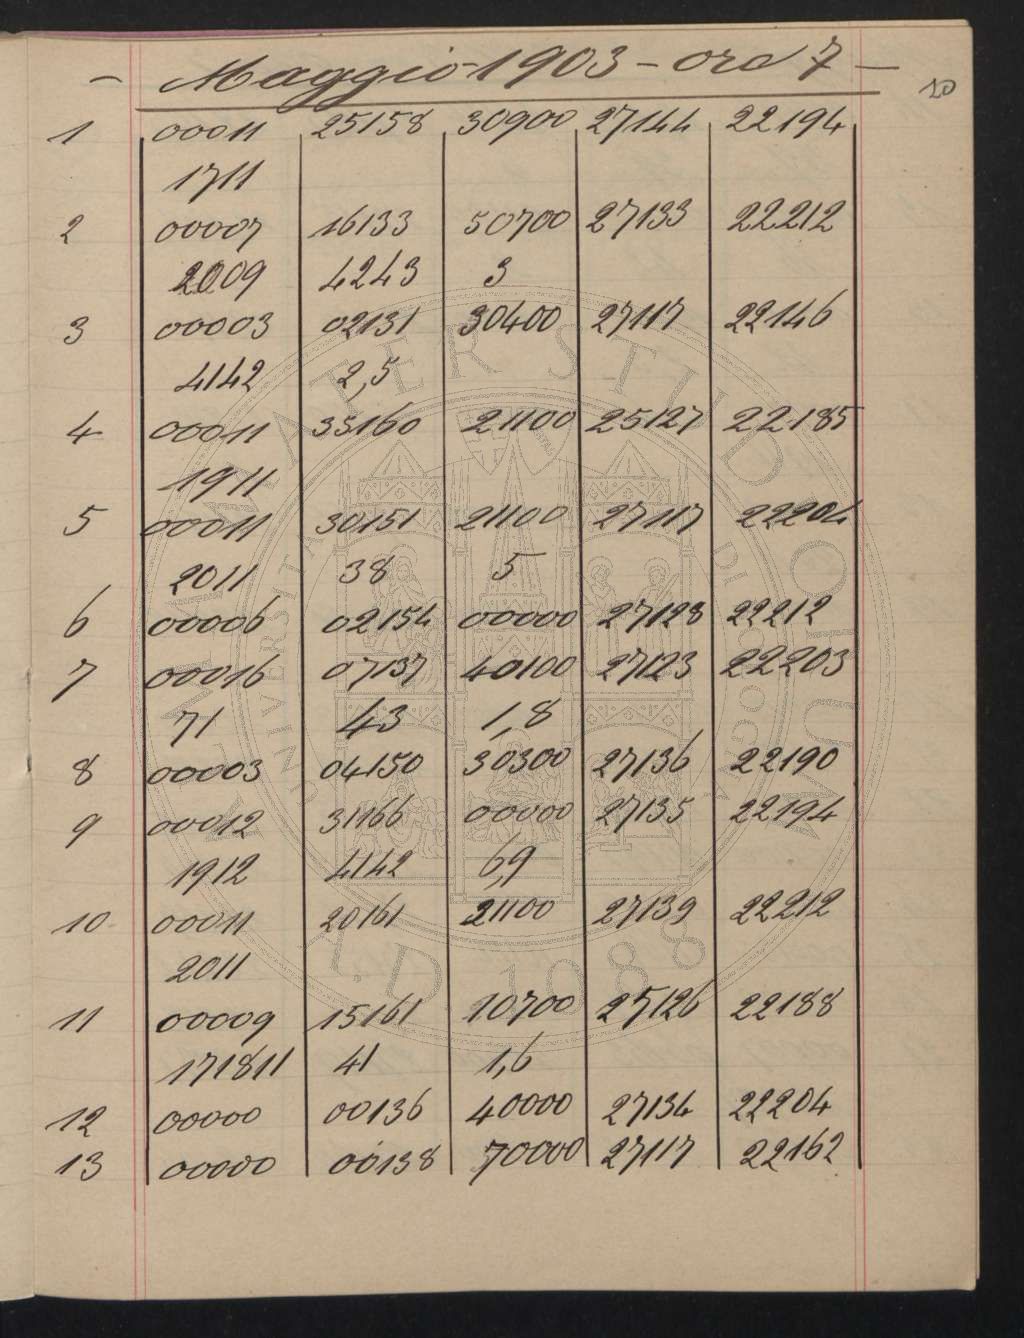 — Maggio 1903 — ore 7 —
10
1 00011 25158 30900 27144 22194
1711
2 00007 16133 50700 27133 22212
2009 4243 3
3 00003 02131 30400 27117 22146
4142 2,5
4 00011 35160 21100 25127 22185
1911
5 00011 30151 21100 27117 22204
2011 38 5
6 00006 02154 00000 27128 22212
7 00016 07137 40100 27123 22203
71 43 1,8
8 00003 04150 30300 27136 22190
9 00012 31166 00000 27135 22194
1912 4142 6,9
10 00011 20161 21100 27139 22212
2011
11 00009 15161 10700 25126 22188
171811 41 1,6
12 00000 00136 40000 27134 22204
13 00000 00138 70000 27117 22162
ALMA MATER STUDIORUM
A.D. 1088